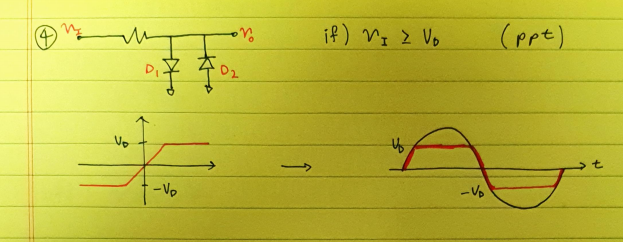 ④ v_I v_o if) v_I ≥ V_D (ppt)
D_1 D_2
V_D V_D t
-V_D -V_D